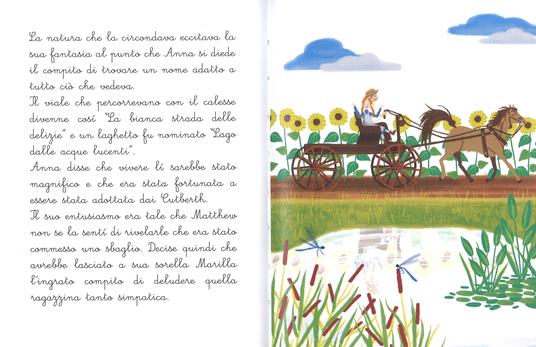 La natura che la circondava eccitava la
sua fantasia al punto che Anna si diede
il compito di trovare un nome adatto a
tutto ciò che vedeva.
Il viale che percorrevano con il calesse
divenne cosí "La bianca strada delle
delizie" e un laghetto fu nominato "Lago
dalle acque lucenti".
Anna disse che vivere lí sarebbe stato
magnifico e che era stata fortunata a
essere stata adottata dai Cutberth.
Il suo entusiasmo era tale che Matthew
non se la sentí di rivelarle che era stato
commesso uno sbaglio. Decise quindi che
avrebbe lasciato a sua sorella Marilla
l'ingrato compito di deludere quella
ragazzina tanto simpatica.